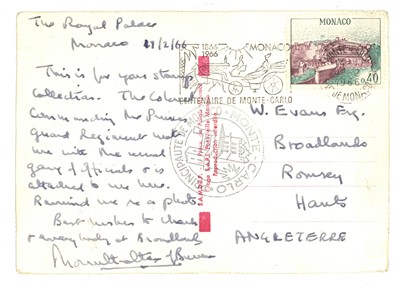 The Royal Palace
Monaco 27/2/66
This is for your stamp
Collection. The Colonel
Commanding the Princes
guard Regiment met
me with the usual
gang of officials & is
attached to me here.
Remind me re a photo.
Best wishes to Charles
& everybody at Broadlands
Mountbatten of Burma
1866
1966
MONACO
CENTENAIRE DE MONTE-CARLO
MONACO
0,40
PRINCIPAUTE DE MONACO - MONTE-CARLO
Reproduction interdite
W. Evans Esq.
Broadlands
Romsey
Hants
ANGLETERRE